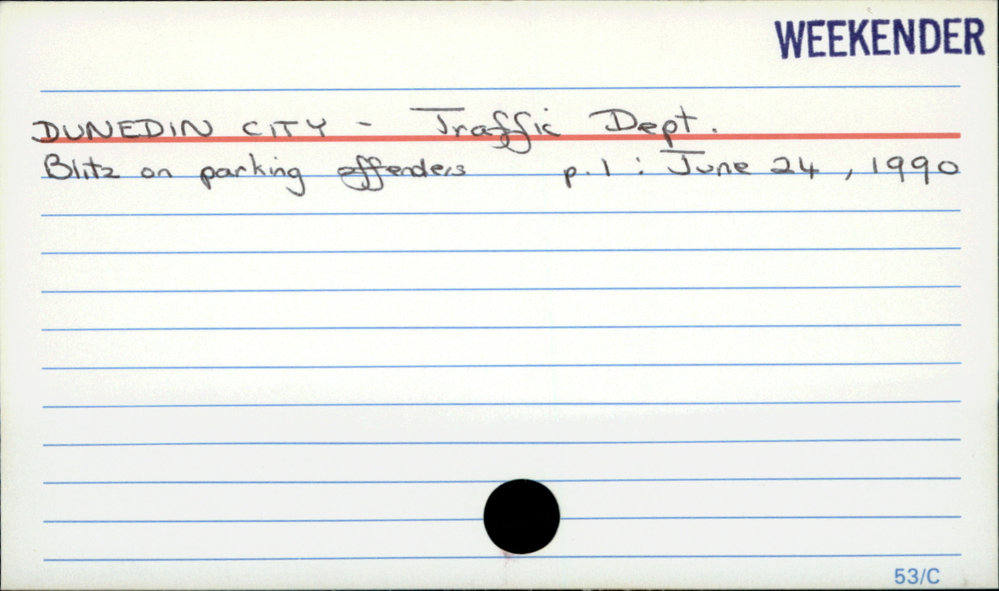 WEEKENDER
DUNEDIN CITY - Traffic Dept.
Blitz on parking offenders p.1 : June 24, 1990
53/C